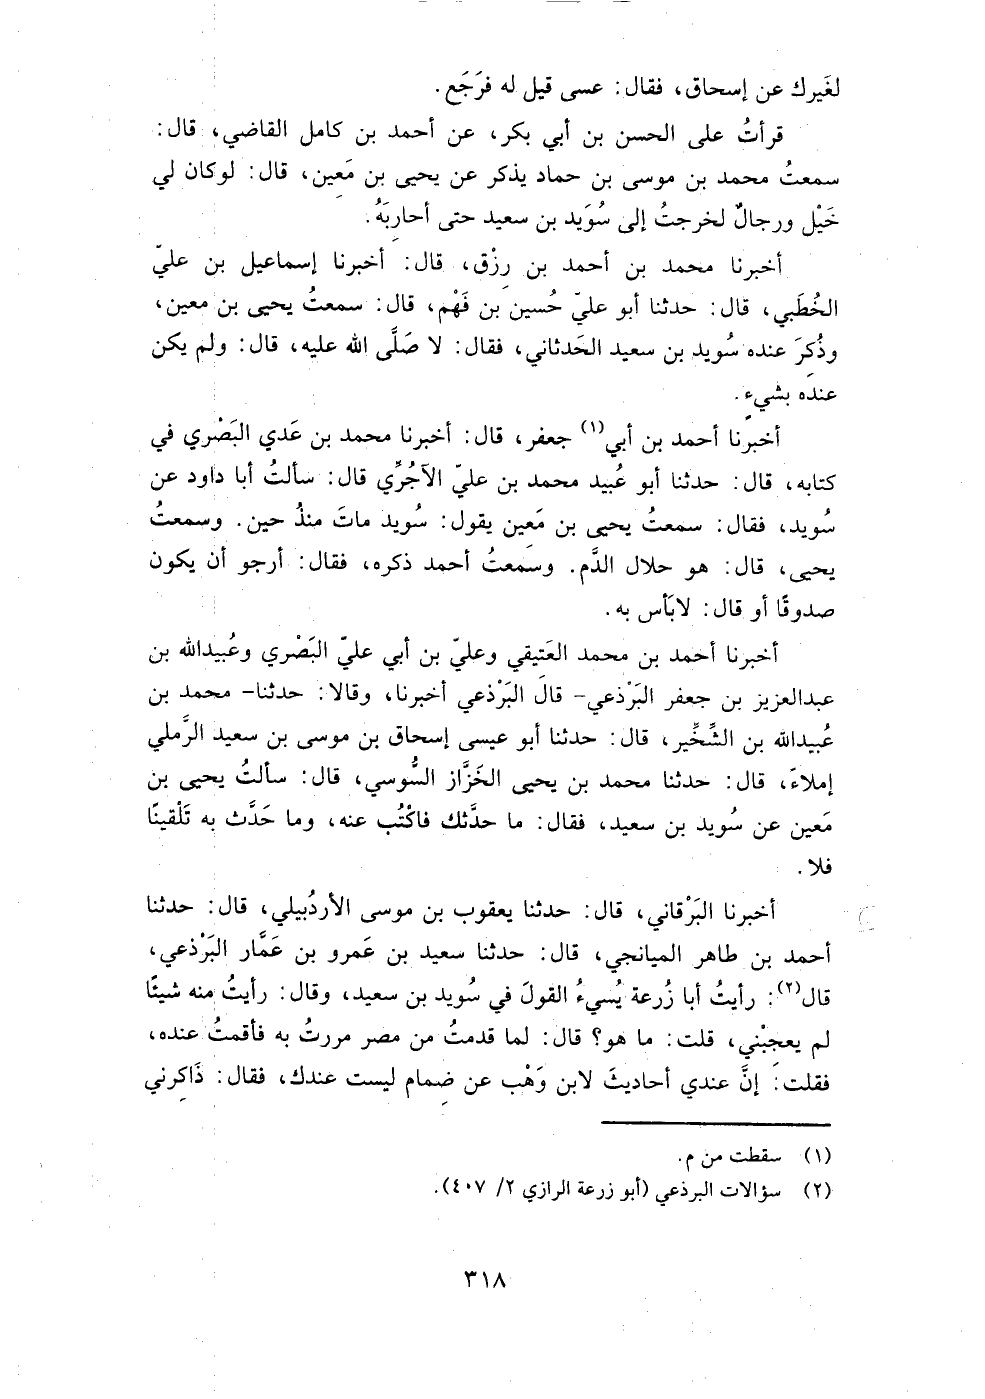 لغَيرك عن إسحاق، فقال: عسى قيل له فرَجَع.
قرأتُ على الحسن بن أبي بكر، عن أحمد بن كامل القاضي، قال:
سمعتُ محمد بن موسى بن حماد يذكر عن يحيى بن مَعِين، قال: لوكان لي
خَيْل ورجالٌ لخرجتُ إلى سُوَيد بن سعيد حتى أحارِبَهُ.
أخبرنا محمد بن أحمد بن رِزْق، قال: أخبرنا إسماعيل بن عليّ
الخُطَبي، قال: حدثنا أبو عليّ حُسين بن فَهْم، قال: سمعتُ يحيى بن معين،
وذُكِرَ عنده سُويد بن سعيد الحَدثاني، فقال: لا صَلَّى الله عليه، قال: ولم يكن
عنده بشيءٍ.
أخبرنا أحمد بن أبي(١) جعفر، قال: أخبرنا محمد بن عَدي البَصْري في
كتابه، قال: حدثنا أبو عُبيد محمد بن عليّ الآجُرِّي قال: سألتُ أبا داود عن
سُويد، فقال: سمعتُ يحيى بن مَعِين يقول: سُويد ماتَ منذُ حين. وسمعتُ
يحيى، قال: هو حلال الدَّم. وسَمعتُ أحمد ذكره، فقال: أرجو أن يكون
صدوقًا أو قال: لابَأس به.
أخبرنا أحمد بن محمد العَتِيقي وعليّ بن أبي عليّ البَصْري وعُبيدالله بن
عبدالعزيز بن جعفر البَرْذعي- قال البَرْذعي أخبرنا، وقالا: حدثنا- محمد بن
عُبيدالله بن الشِّخِّير، قال: حدثنا أبو عيسى إسحاق بن موسى بن سعيد الرَّملي
إملاءً، قال: حدثنا محمد بن يحيى الخَزَّاز السُّوسي، قال: سألتُ يحيى بن
مَعين عن سُويد بن سعيد، فقال: ما حدَّثك فاكْتُب عنه، وما حَدَّث به تَلْقينًا
فلا.
أخبرنا البَرْقاني، قال: حدثنا يعقوب بن موسى الأردُبيلي، قال: حدثنا
أحمد بن طاهر الميانجي، قال: حدثنا سعيد بن عَمرو بن عَمَّار البَرْذعي،
قال(٢): رأيتُ أبا زُرعة يُسيءُ القولَ في سُويد بن سعيد، وقال: رأيتُ منه شيئًا
لم يعجِبْني، قلت: ما هو؟ قال: لما قدمتُ من مصر مررتُ به فأقمتُ عنده،
فقلت: إنَّ عندي أحاديثَ لابن وَهْب عن ضِمام ليست عندك، فقال: ذَاكِرني
(١) سقطت من م.
(٢) سؤالات البرذعي (أبو زرعة الرازي ٢/ ٤٠٧).
٣١٨